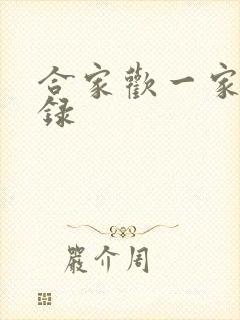 合家歡一家
錄
嚴介周